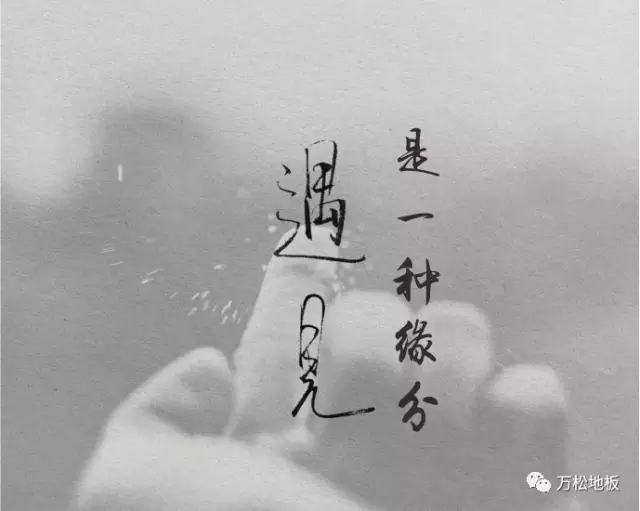 遇見
是一种缘分
万松地板